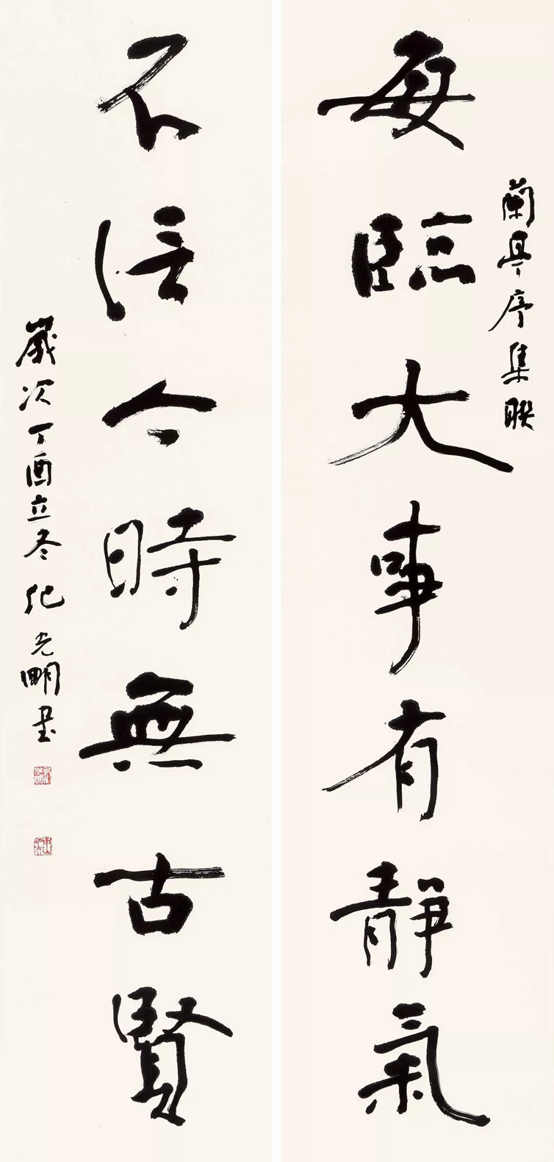 蘭亭序集聯
每臨大事有靜氣
不信今時無古賢
歲次丁酉立冬紀光明書